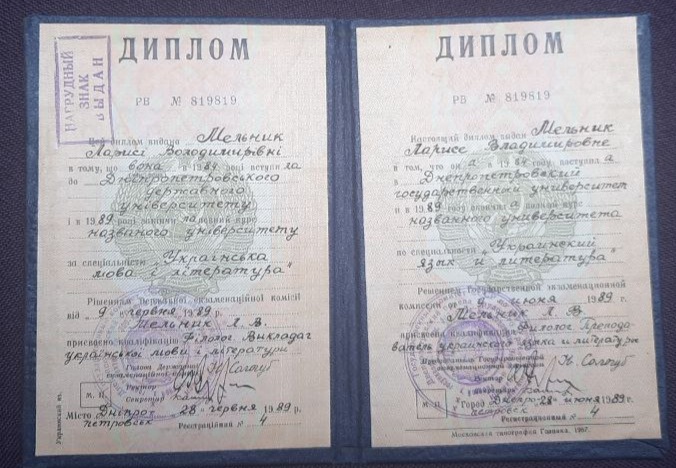 НАГРУДНЫЙ
ЗНАК
ВЫДАН
ДИПЛОМ
РВ № 819819
Цей диплом видано Мельник
Ларисі Володимирівні
в тому, що вона в 1984 році вступила
до Дніпропетровського
державного
університету
і в 1989 році закінчила повний курс
названого університету
за спеціальністю „Українська
мова і література"
Рішенням Державної екзаменаційної комісії
від „9" червня 1989 р.
Мельник Л. В.
присвоєно кваліфікацію Філолог Викладач
української мови і літератури
Голова Державної
екзаменаційної комісії Н. Сологуб
Ректор
Секретар
М. П.
Місто Дніпро- „28" червня 1989 р.
петровськ Реєстраційний № 4
Украинский яз.
ДИПЛОМ
РВ № 819819
Настоящий диплом выдан Мельник
Ларисе Владимировне
в том, что она в 1984 году поступила
в Днепропетровский
государственный университет
и в 1989 году окончила полный курс
названного университета
по специальности „Украинский
язык и литература"
Решением Государственной экзаменационной
комиссии от „9" июня 1989 г.
Мельник Л. В.
присвоена квалификация Филолог Препода-
ватель украинского языка и литературы
Председатель Государственной
экзаменационной комиссии Н. Сологуб
Ректор
Секретарь
М. П. Город Днепро- „28" июня 1989 г.
петровск Регистрационный № 4
Московская типография Гознака. 1987.